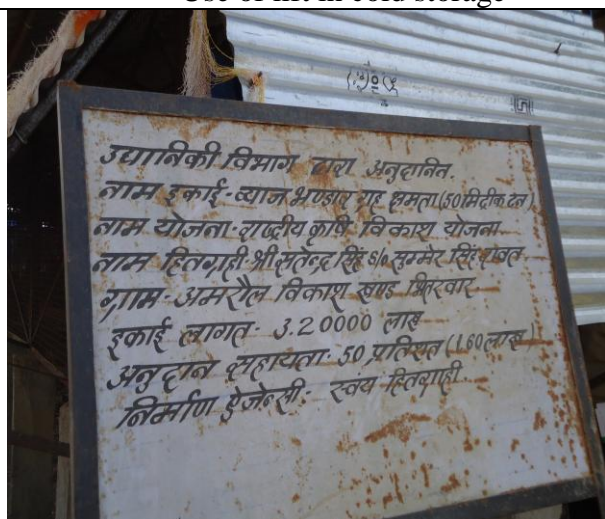 Use of lift in cold storage
उद्यानिकी विभाग द्वारा अनुदानित.
नाम इकाई - प्याज भण्डार गृह क्षमता (50 मिट्रीक टन)
नाम योजना - राष्ट्रीय कृषि विकाश योजना
नाम हितग्राही श्री सतेन्द्र सिंह S/o सुम्मेर सिंह रावत
ग्राम - अमरौल विकाश खण्ड भितरवार
इकाई लागत - 3.20000 लाख
अनुदान सहायता - 50 प्रतिशत (1.60 लाख)
निर्माण ऐजेन्सी - स्वंय हितग्राही